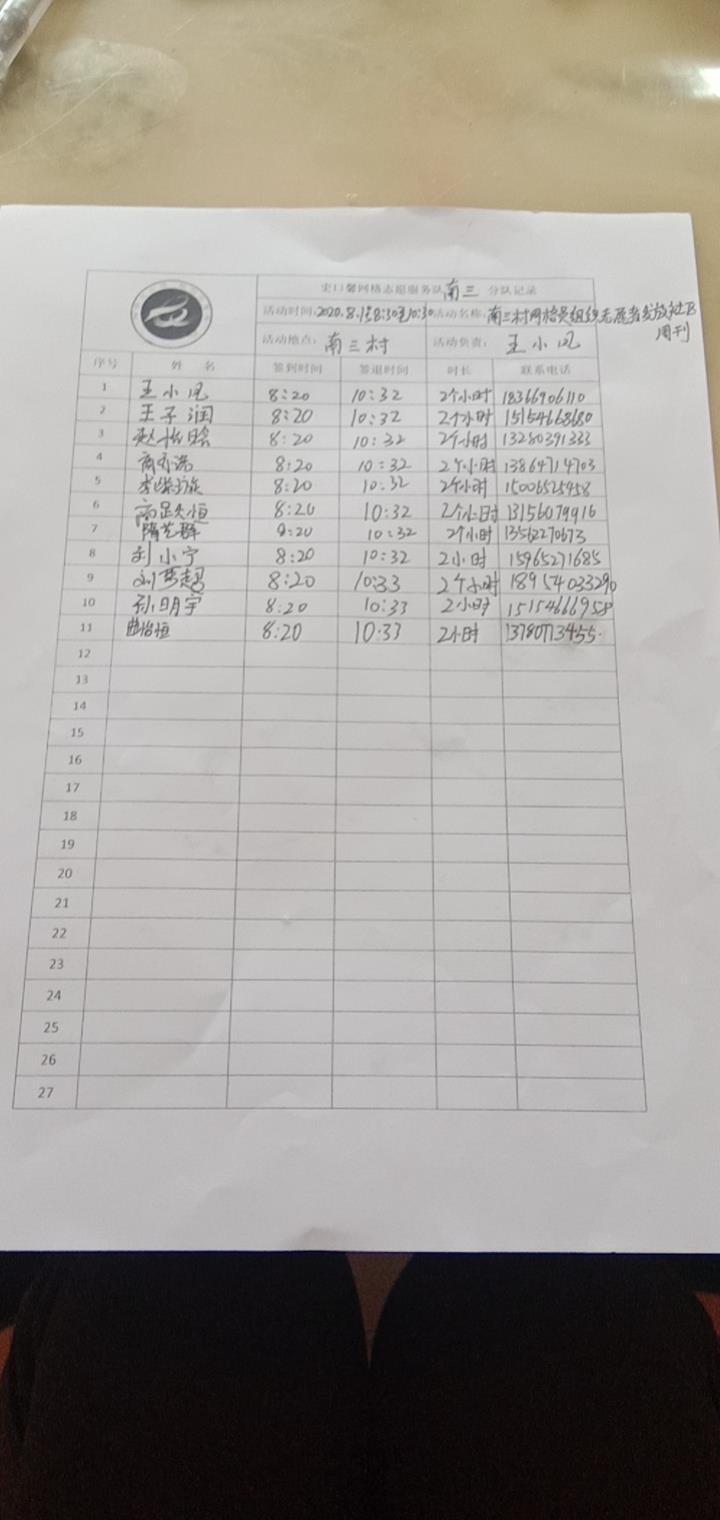 史口馨网格志愿服务队南三 分队记录
活动时间:2020.8.1 8:30至10:30 活动名称:南三村网格员组织志愿者发放社区周刊
活动地点: 南三村 活动负责: 王小凤
序号 姓 名 签到时间 签退时间 时长 联系电话
1 王小凤 8:20 10:32 2个小时 18366906110
2 王子润 8:20 10:32 2个小时 15154668680
3 赵怡晗 8:20 10:32 2个小时 13280391333
4 8:20 10:32 2个小时 13864714703
5 8:20 10:32 2个小时 15006525458
6 8:20 10:32 2个小时 13156079916
7 隋艺群 8:20 10:32 2个小时 13562270673
8 刘小宁 8:20 10:32 2小时 15965271685
9 刘梦超 8:20 10:33 2个小时 18954033290
10 孙明宇 8:20 10:33 2小时 15154666958
11 8:20 10:33 2小时 13780773455
12
13
14
15
16
17
18
19
20
21
22
23
24
25
26
27